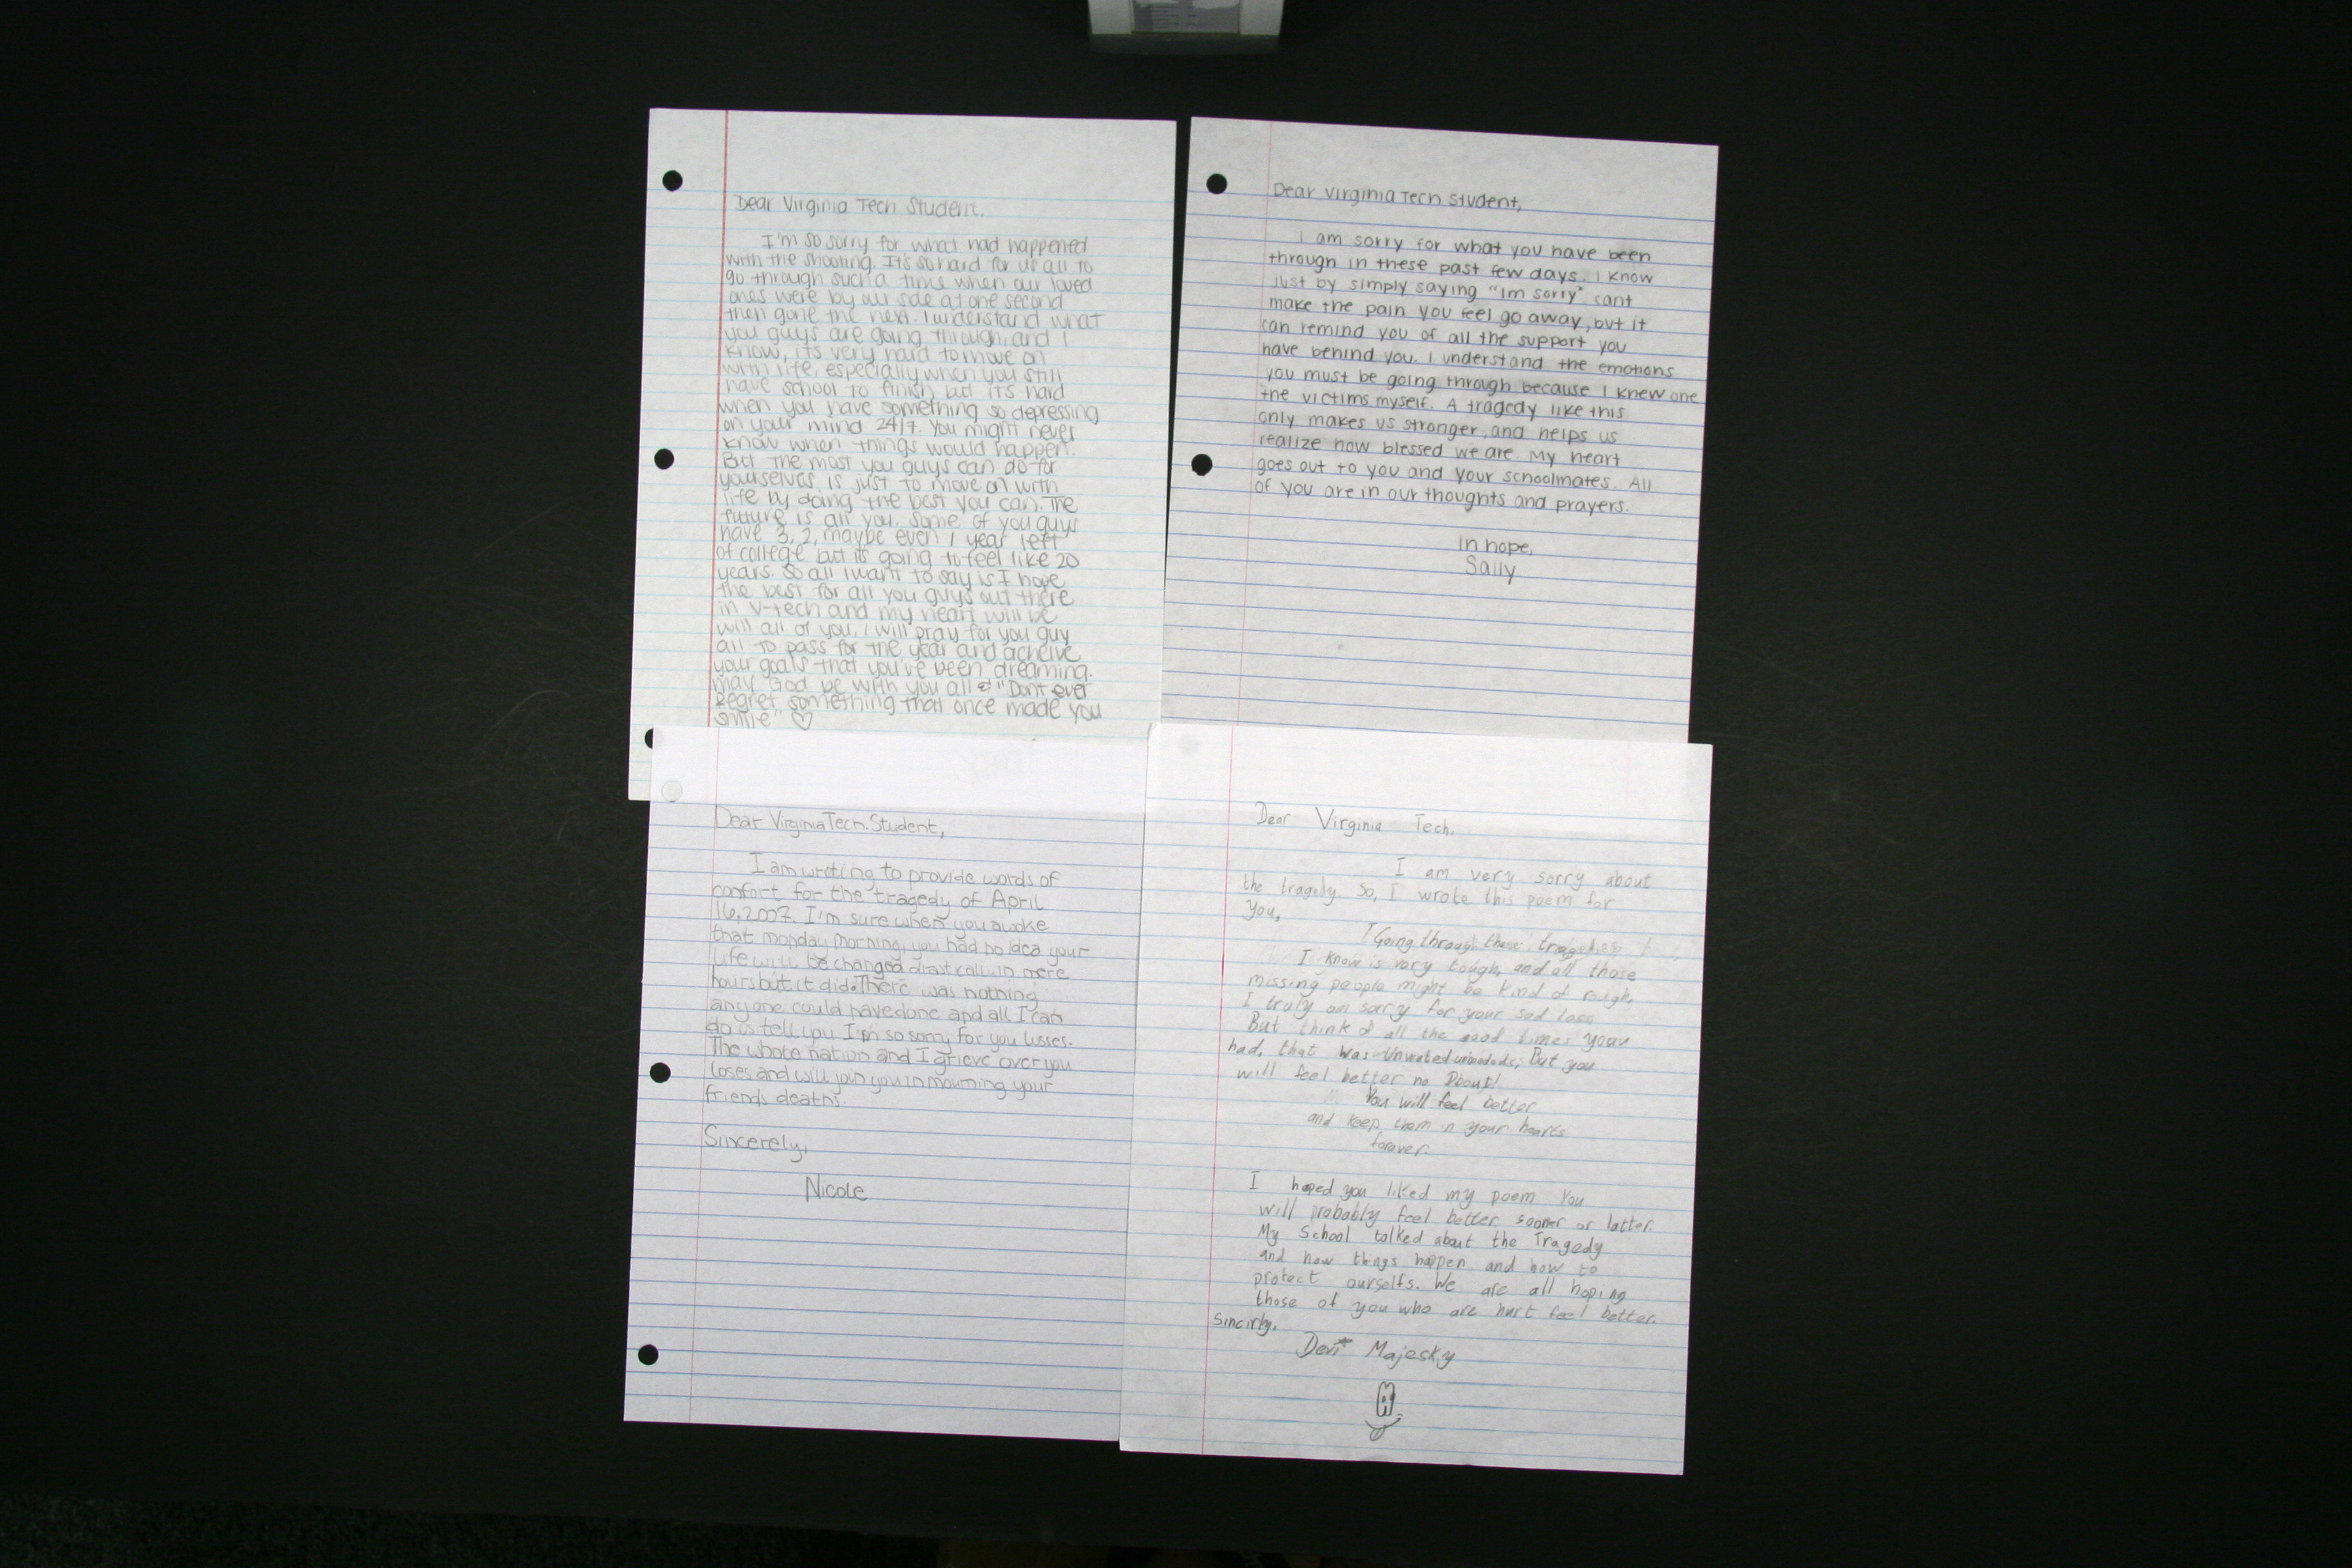 Dear Virginia Tech Student,
I'm so sorry for what had happened
with the shooting. It's so hard for us all to
go through such a time when our loved
ones were by our side at one second
then gone the next. I understand what
you guys are going through, and I
know, it's very hard to move on
with life, especially when you still
have school to finish but it's hard
when you have something so depressing
on your mind 24/7. You might never
know when things would happen.
But the most you guys can do for
yourselves is just to move on with
life by doing the best you can. The
future is all you. Some of you guys
have 3, 2, maybe even 1 year left
of college but it's going to feel like 20
years. So all I want to say is I hope
the best for all you guys out there
in V-Tech and my heart will be
will all of you. I will pray for you guy
all to pass for the year and acheive
your goals that you've been dreaming.
may God be with you all & "Don't ever
Regret something that once made you
smile" ♡
Dear Virginia Tech Student,
I am sorry for what you have been
through in these past few days. I know
just by simply saying "Im sorry" cant
make the pain you feel go away, but it
can remind you of all the support you
have behind you. I understand the emotions
you must be going through because I knew one
the victims myself. A tragedy like this
only makes us stronger, and helps us
realize how blessed we are. My heart
goes out to you and your schoolmates. All
of you are in our thoughts and prayers.
In hope,
Sally
Dear Virginia Tech. Student,
I am writing to provide words of
comfort for the tragedy of April
16, 2007. I'm sure when you awoke
that monday morning, you had no idea your
life will be changed drasticall in mere
hours but it did. There was nothing
anyone could have done and all I can
do is tell you I'm so sorry for you losses.
The whole nation and I grieve over you
loses and will join you in mourning your
friends deaths.
Sincerely,
Nicole
Dear Virginia Tech.
I am very sorry about
the tragedy. So, I wrote this poem for
You,
Going through these
I know is very tough, and all those
missing people might be kind of rough.
I truly am sorry for your sad loss
But think of all the good times your
had, that was But you
will feel better no Dbout!
You will feel better
and keep them in your hearts
forever.
I hoped you liked my poem You
will probably feel better sooner or latter.
My School talked about the Tragedy
and how things happen and how to
protect ourselfs. We are all hoping
those of you who are hurt feel better.
Sincirly,
Majesky